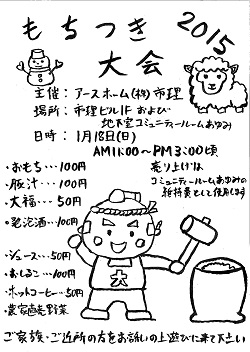 もちつき
大会
2015
主催：アースホーム(株)市理
場所：市理ビル1F および
地下室コミュニティールームあゆみ
日時：1月18日(日)
AM11:00〜PM3:00頃
・おもち…100円
・豚汁…100円
・大福…50円
・発泡酒…100円
・ジュース…50円
・おしるこ…100円
・ホットコーヒー…50円
・農家直売野菜
売り上げは
コミュニティールームあゆみの
維持費として使用します
大
ご家族・ご近所の方をお誘いの上遊びに来て下さい